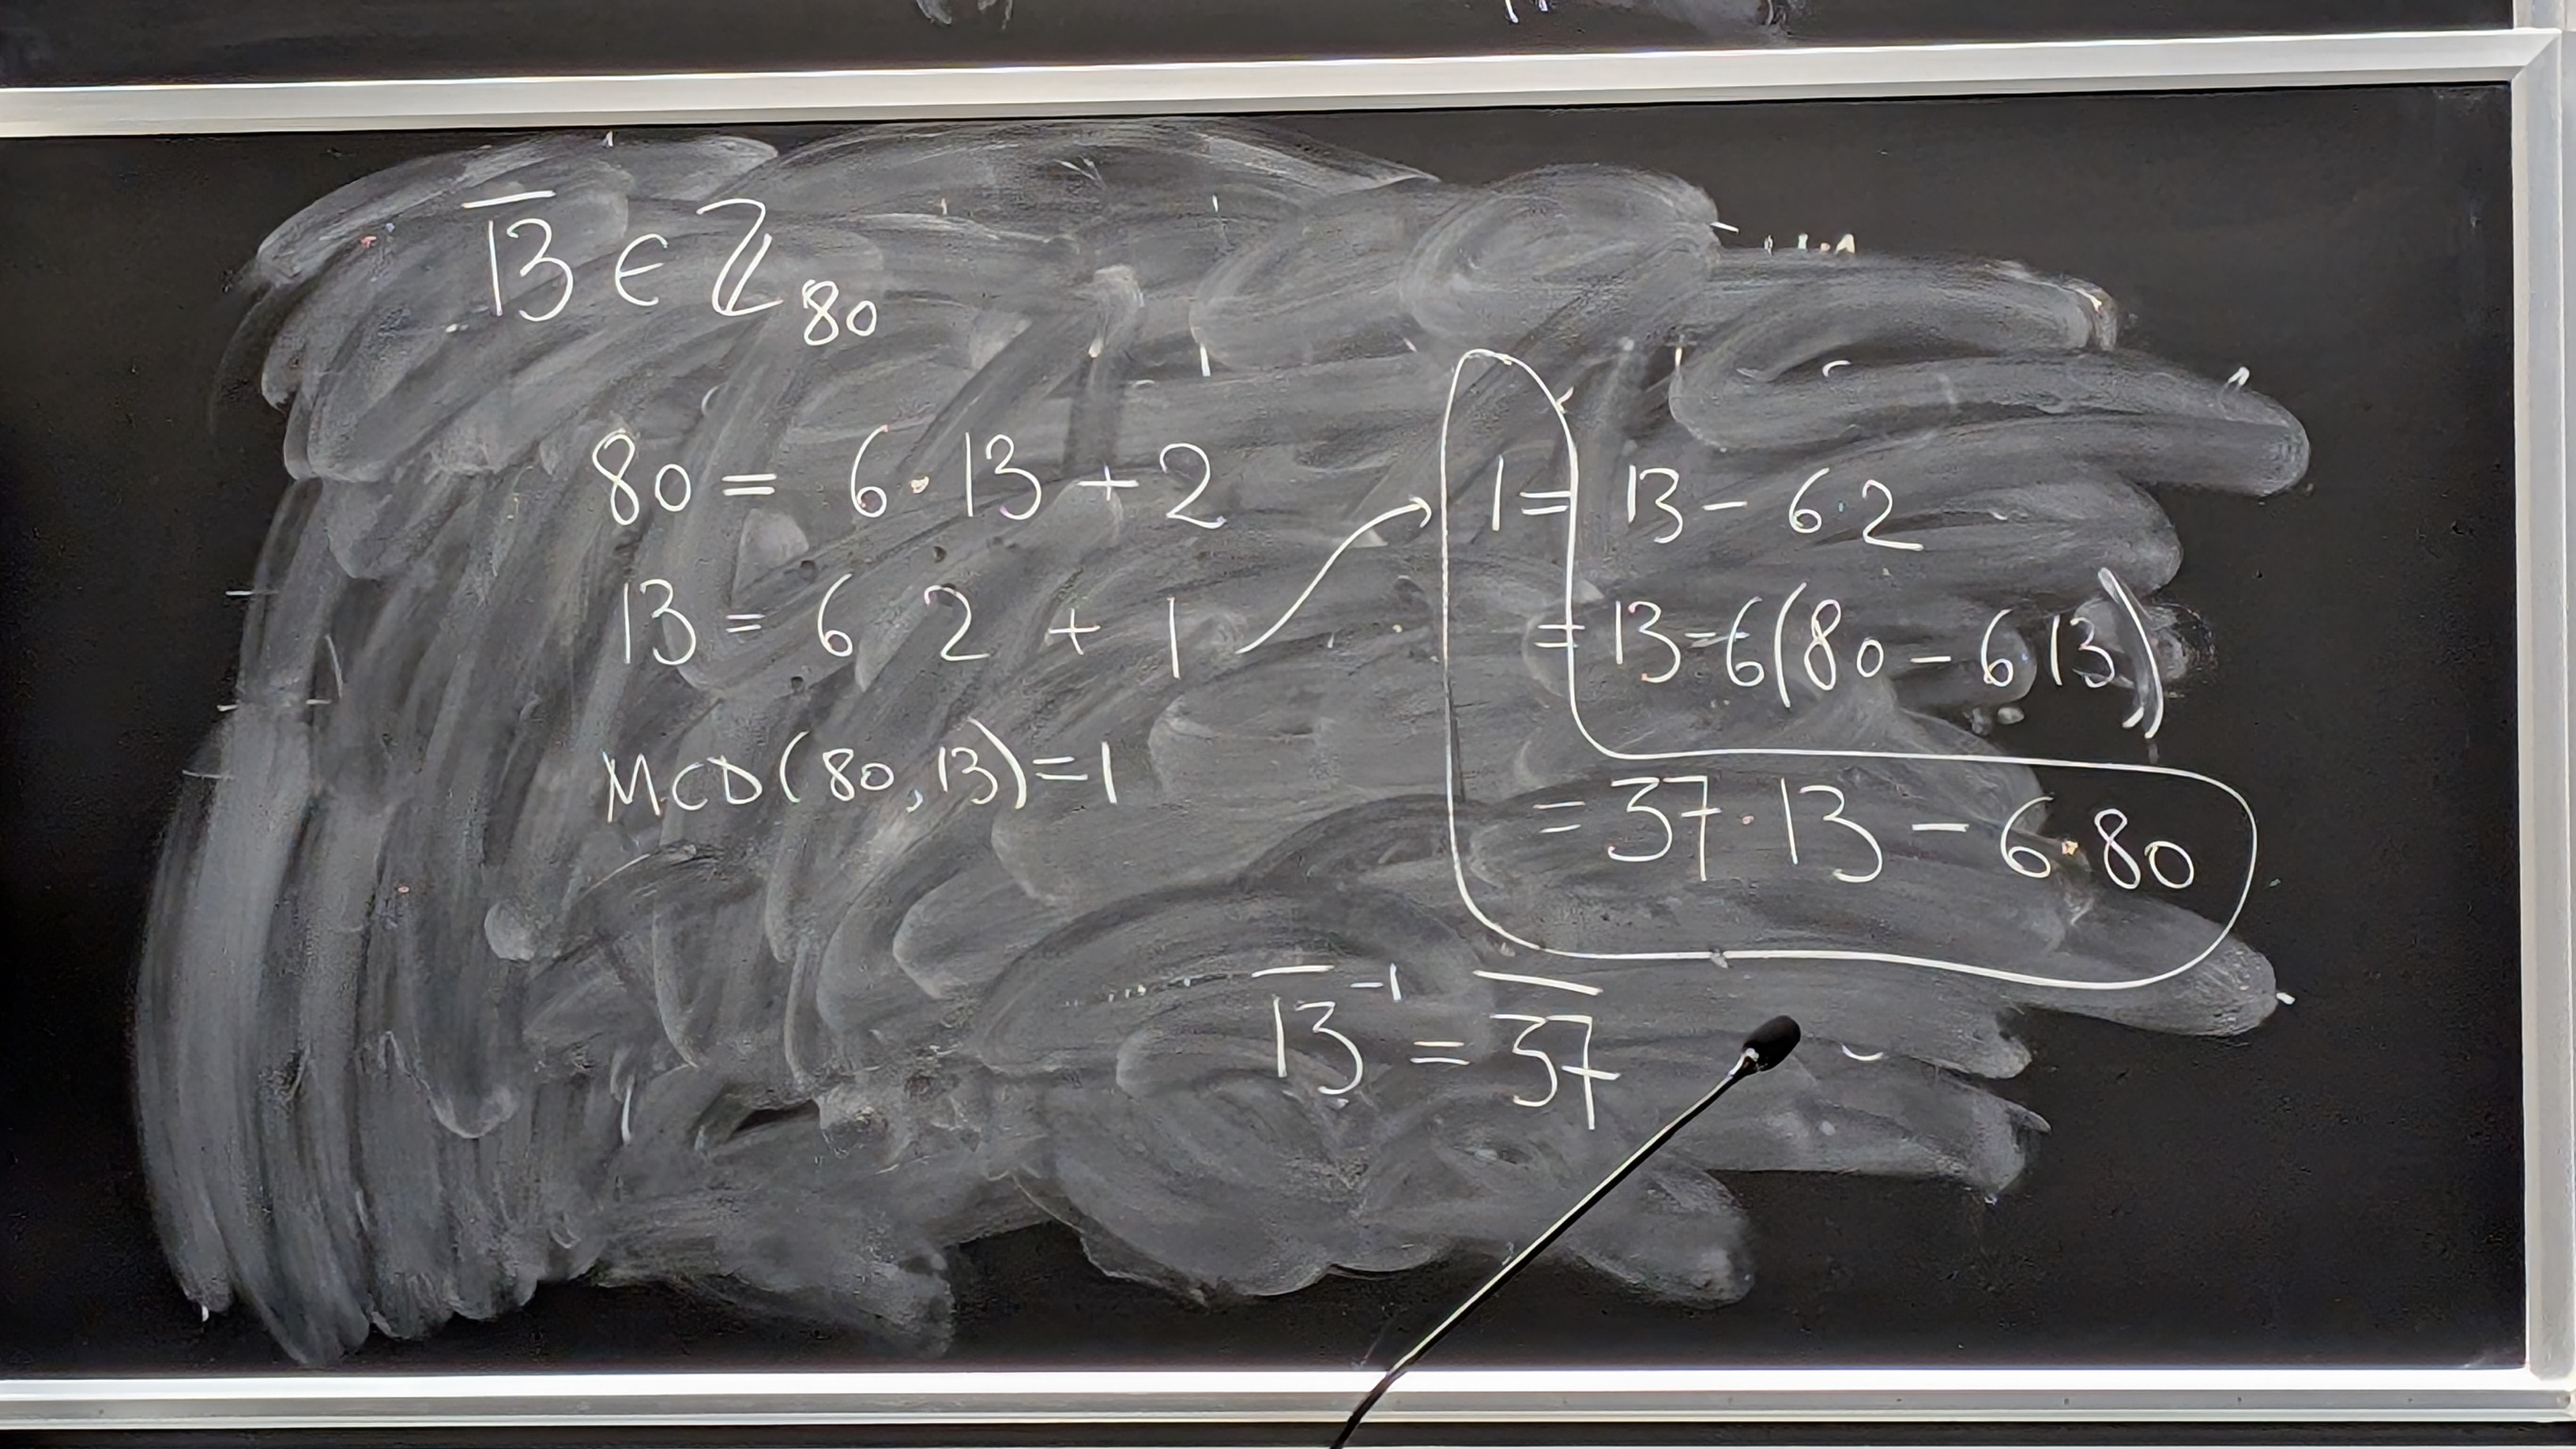 1̅3̅ ∈ ℤ₈₀
80 = 6·13 + 2
13 = 6 2 + 1
MCD(80,13)=1
1 = 13 - 6·2
= 13-6(80 - 6 13)
= 37·13 - 6·80
1̅3̅⁻¹ = 3̅7̅